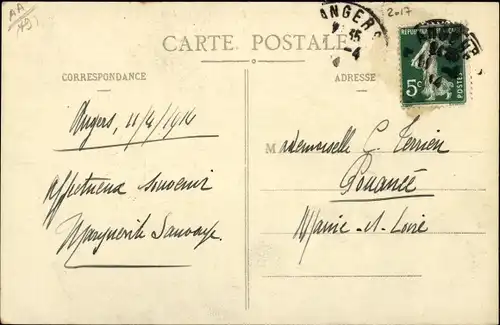 AA
2017
ANGERS
15
-4
RÉPUBLIQUE FRANÇAISE
5c
POSTES
CARTE POSTALE
CORRESPONDANCE
ADRESSE
Angers, 11/4/1914
Affectueux souvenir
Marguerite Sauvage
Mademoiselle C. Terrien
Pouancé
Maine-et-Loire